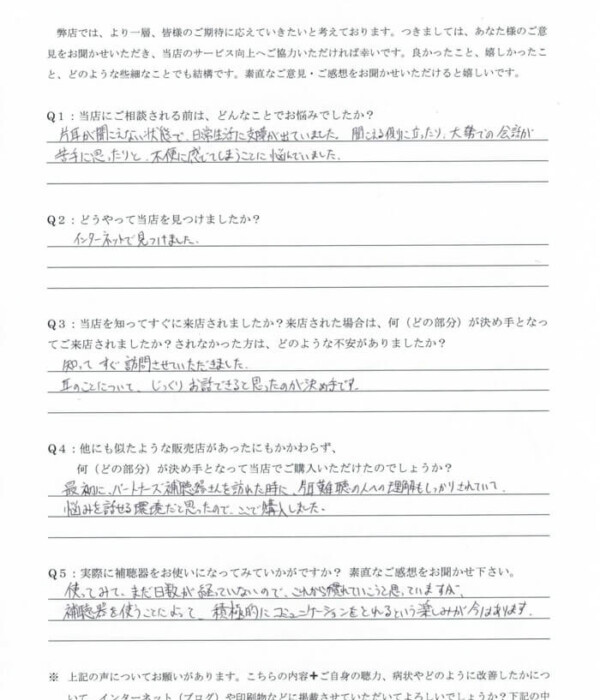 弊店では、より一層、皆様のご期待に応えていきたいと考えております。つきましては、あなた様のご意
見をお聞かせいただき、当店のサービス向上へご協力いただければ幸いです。良かったこと、嬉しかったこ
と、どのような些細なことでも結構です。素直なご意見・ご感想をお聞かせいただけると嬉しいです。
Q1：当店にご相談される前は、どんなことでお悩みでしたか？
片耳が聞こえない状態で、日常生活に支障が出ていました。聞こえる側に立ったり、大勢での会話が
苦手に思ったりと、不便に感じてしまうことに悩んでいました。
Q2：どうやって当店を見つけましたか？
インターネットで見つけました。
Q3：当店を知ってすぐに来店されましたか？来店された場合は、何（どの部分）が決め手となっ
てご来店されましたか？されなかった方は、どのような不安がありましたか？
知って すぐ 訪問させていただきました。
耳のことについて、じっくり お話できると思ったのが決め手です。
Q4：他にも似たような販売店があったにもかかわらず、
何（どの部分）が決め手となって当店でご購入いただけたのでしょうか？
最初に、パートナーズ補聴器さんを訪れた時に、難聴の人への理解もしっかりされていて、
悩みを話せる環境だと思ったので、ここで購入しました。
Q5：実際に補聴器をお使いになってみていかがですか？ 素直なご感想をお聞かせ下さい。
使ってみて、まだ日数が経っていないので、これから慣れていこうと思っていますが、
補聴器を使うことによって、積極的にコミュニケーションをとれるという楽しみが今はあります。
※ 上記の声についてお願いがあります。こちらの内容＋ご自身の聴力、病状やどのように改善したかにつ
いて、インターネット（ブログ）や印刷物などに掲載させていただいてよろしいでしょうか？下記の中